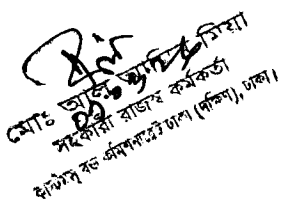 মোঃ আবু আহাদ মিয়া
সহকারী রাজস্ব কর্মকর্তা
কাস্টমস্ বন্ড কমিশনারেট ঢাকা (দক্ষিণ), ঢাকা।